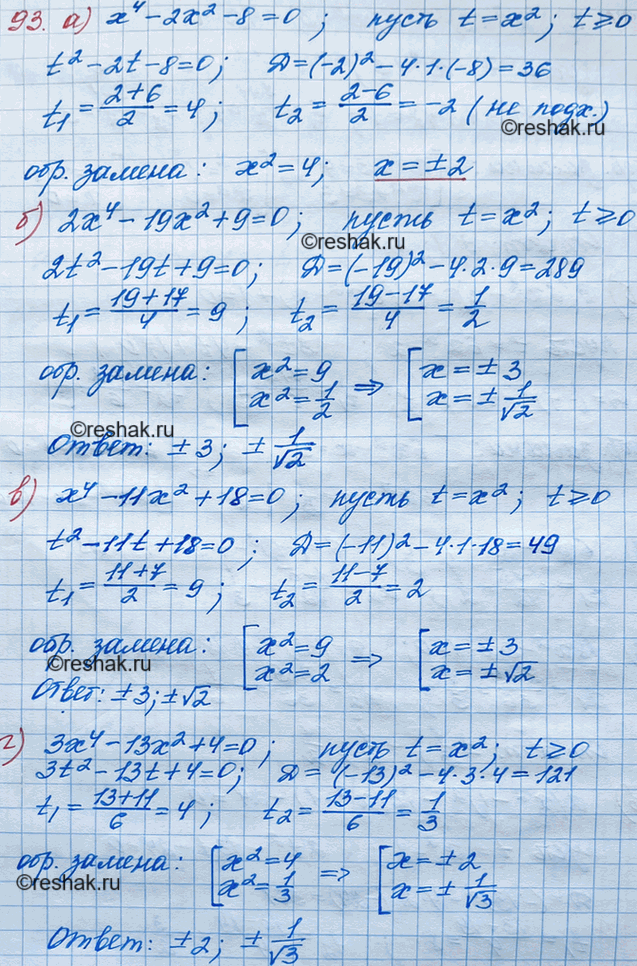 93. а) x⁴ − 2x² − 8 = 0; пусть t = x²; t ≥ 0
t² − 2t − 8 = 0; D = (−2)² − 4·1·(−8) = 36
t₁ = (2+6)/2 = 4; t₂ = (2−6)/2 = −2 (не подх.)
©reshak.ru
обр. замена: x² = 4; x = ±2
б) 2x⁴ − 19x² + 9 = 0; пусть t = x²; t ≥ 0
©reshak.ru
2t² − 19t + 9 = 0; D = (−19)² − 4·2·9 = 289
t₁ = (19+17)/4 = 9; t₂ = (19−17)/4 = 1/2
обр. замена: [x² = 9 ⇒ [x = ±3
x² = 1/2 x = ±1/√2
©reshak.ru
Ответ: ±3; ±1/√2
в) x⁴ − 11x² + 18 = 0; пусть t = x²; t ≥ 0
t² − 11t + 18 = 0; D = (−11)² − 4·1·18 = 49
t₁ = (11+7)/2 = 9; t₂ = (11−7)/2 = 2
обр. замена: [x² = 9 ⇒ [x = ±3
x² = 2 x = ±√2
©reshak.ru
Ответ: ±3; ±√2
г) 3x⁴ − 13x² + 4 = 0; пусть t = x²; t ≥ 0
3t² − 13t + 4 = 0; D = (−13)² − 4·3·4 = 121
t₁ = (13+11)/6 = 4; t₂ = (13−11)/6 = 1/3
обр. замена: [x² = 4 ⇒ [x = ±2
x² = 1/3 x = ±1/√3
©reshak.ru
Ответ: ±2; ±1/√3